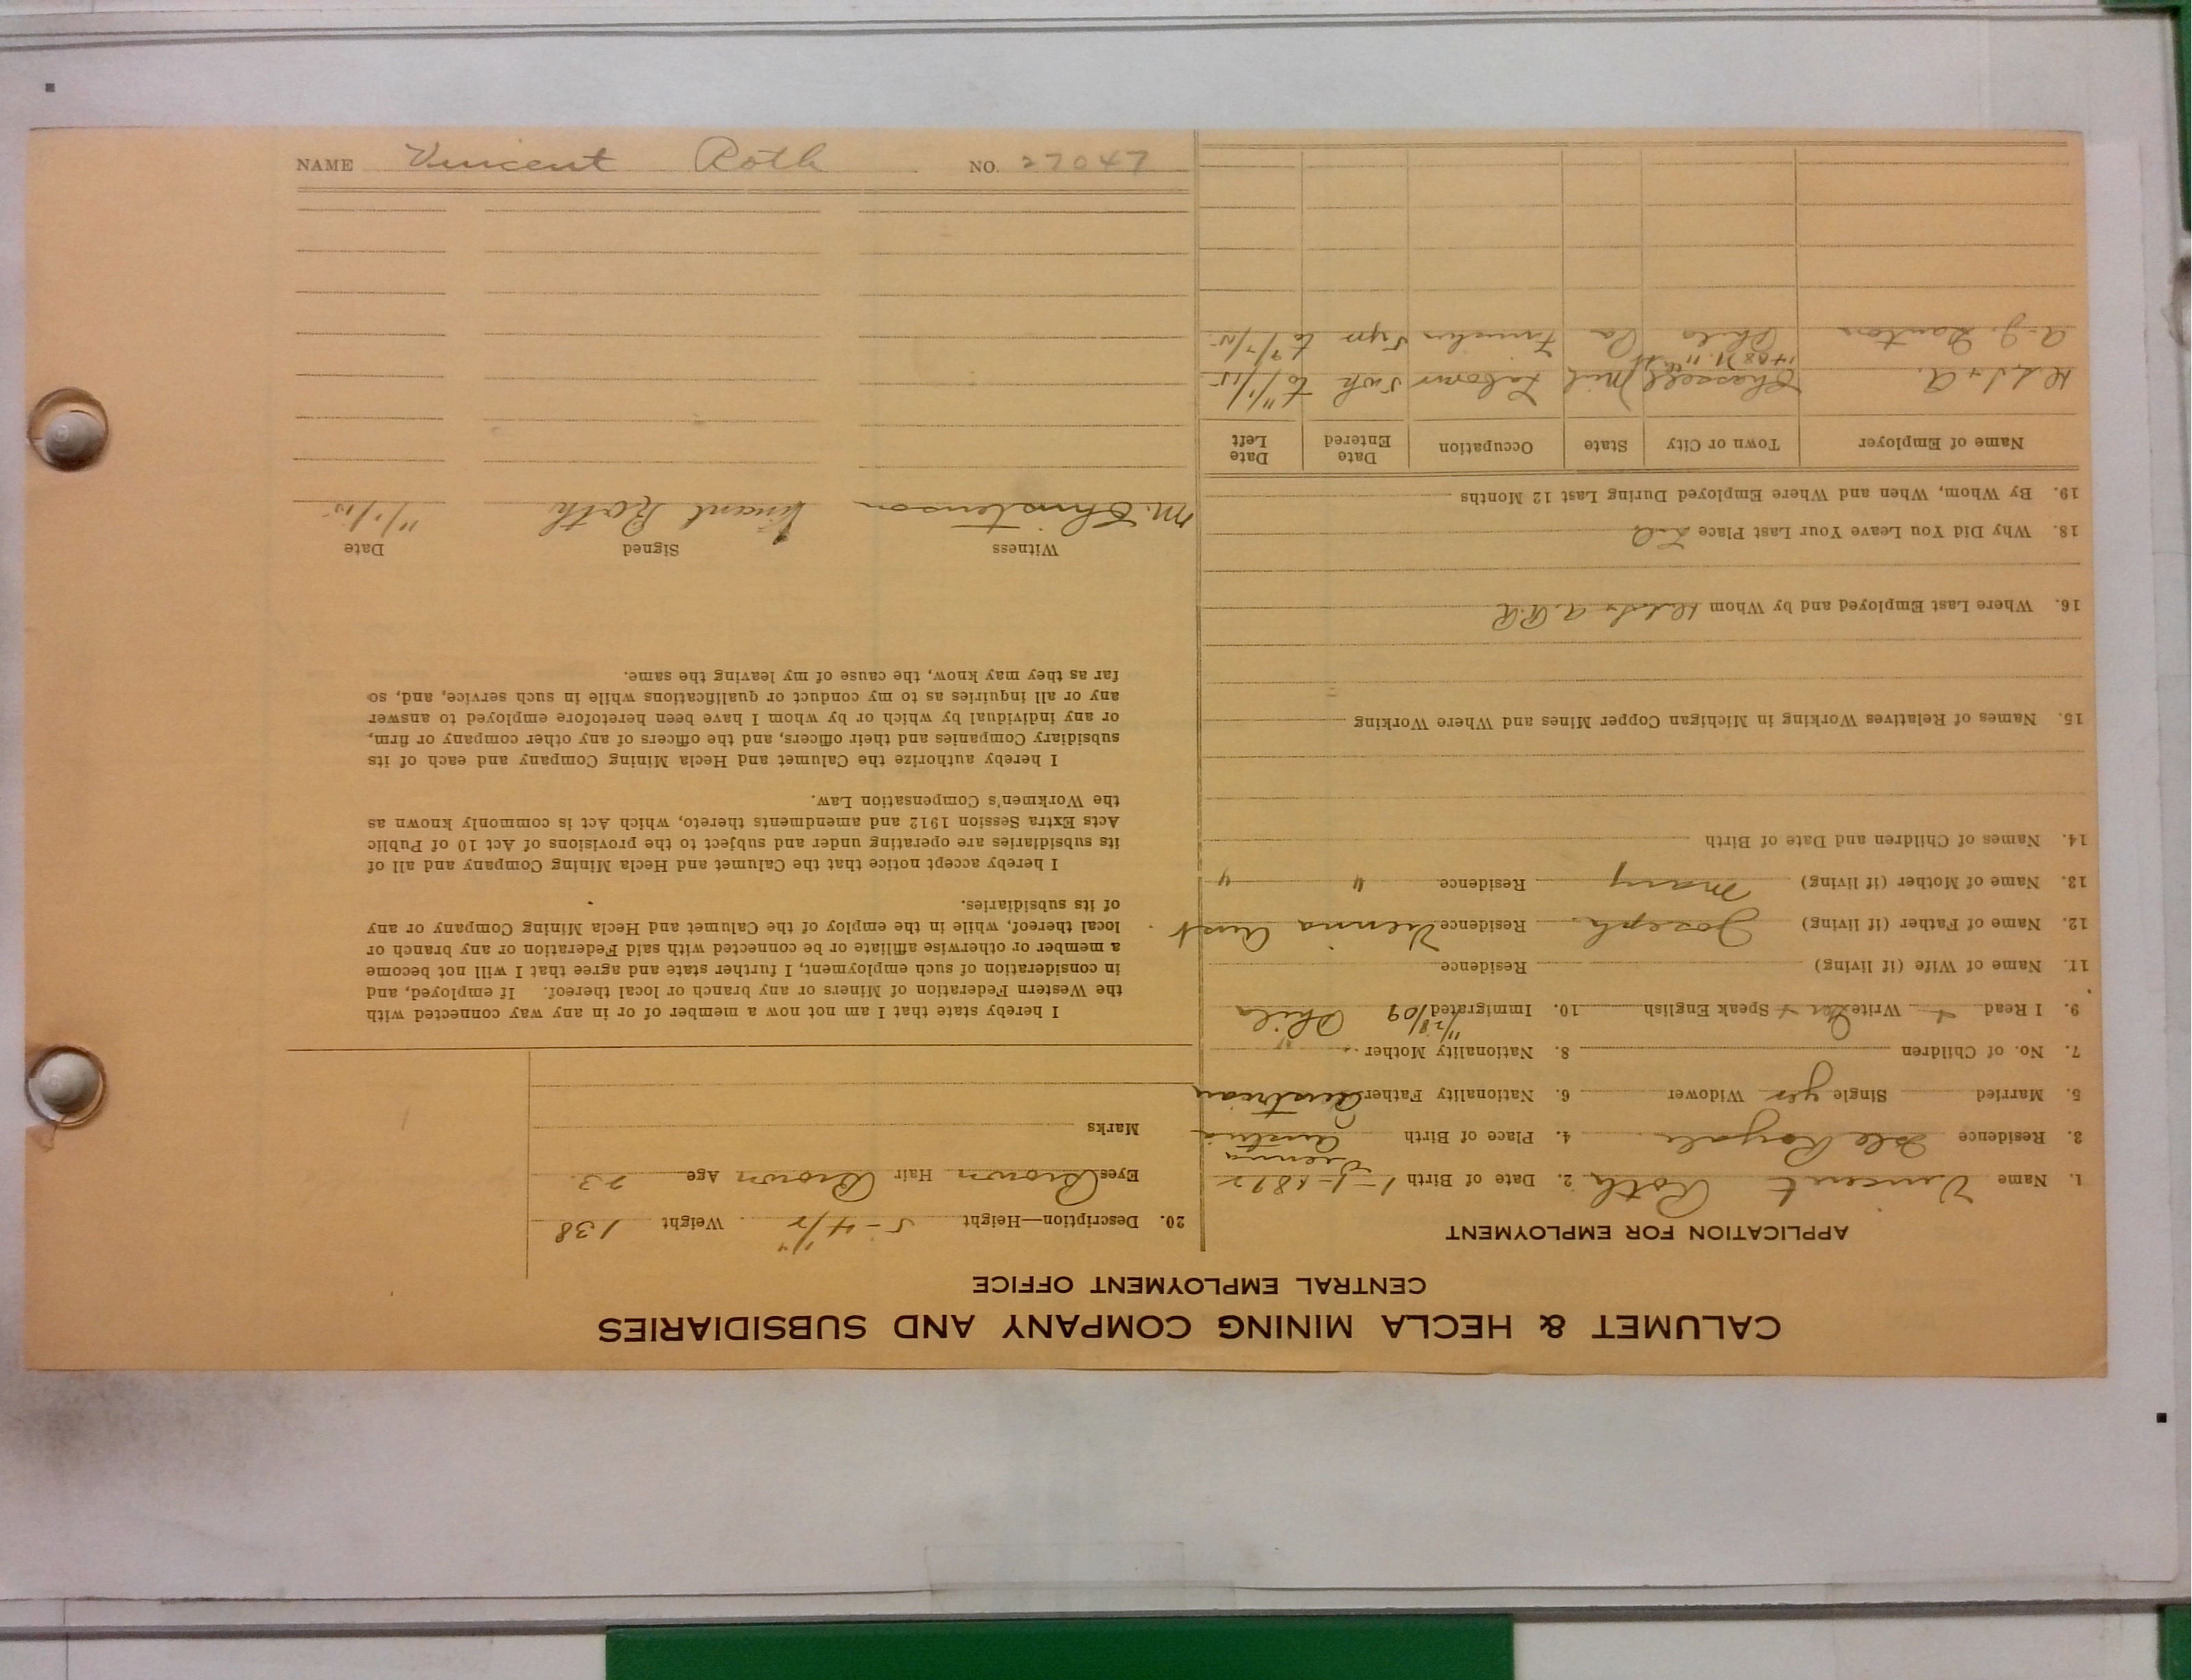 CALUMET & HECLA MINING COMPANY AND SUBSIDIARIES
CENTRAL EMPLOYMENT OFFICE
APPLICATION FOR EMPLOYMENT
1. Name Vincent Roth 2. Date of Birth 1-1-1892
3. Residence Isle Royale 4. Place of Birth Vienna Austria
5. Married Single yes Widower 6. Nationality Father Austrian
7. No. of Children 8. Nationality Mother "
9. I Read + Write Ger + Speak English 10. Immigrated 11/28/09 Phila
11. Name of Wife (if living) Residence
12. Name of Father (if living) Joseph Residence Vienna Aust
13. Name of Mother (if living) Mary Residence " "
14. Names of Children and Date of Birth
15. Names of Relatives Working in Michigan Copper Mines and Where Working
16. Where Last Employed and by Whom R.R.
18. Why Did You Leave Your Last Place
19. By Whom, When and Where Employed During Last 12 Months
Name of Employer Town or City State Occupation Date Entered Date Left
Chassell Mich Laborer 3 wk to 11/1/15
1408 N. 11th St
A. J. Phila Pa 5 yr to 9/7/15
20. Description—Height 5-4 1/2 Weight 138
Eyes Brown Hair Brown Age 23
Marks
I hereby state that I am not now a member of or in any way connected with
the Western Federation of Miners or any branch or local thereof. If employed, and
in consideration of such employment, I further state and agree that I will not become
a member or otherwise affiliate or be connected with said Federation or any branch or
local thereof, while in the employ of the Calumet and Hecla Mining Company or any
of its subsidiaries.
I hereby accept notice that the Calumet and Hecla Mining Company and all of
its subsidiaries are operating under and subject to the provisions of Act 10 of Public
Acts Extra Session 1912 and amendments thereto, which Act is commonly known as
the Workmen's Compensation Law.
I hereby authorize the Calumet and Hecla Mining Company and each of its
subsidiary Companies and their officers, and the officers of any other company or firm,
or any individual by which or by whom I have been heretofore employed to answer
any or all inquiries as to my conduct or qualifications while in such service, and, so
far as they may know, the cause of my leaving the same.
Witness Signed Date
M. Christenson Vincent Roth 11/1/15
NAME Vincent Roth NO. 27047